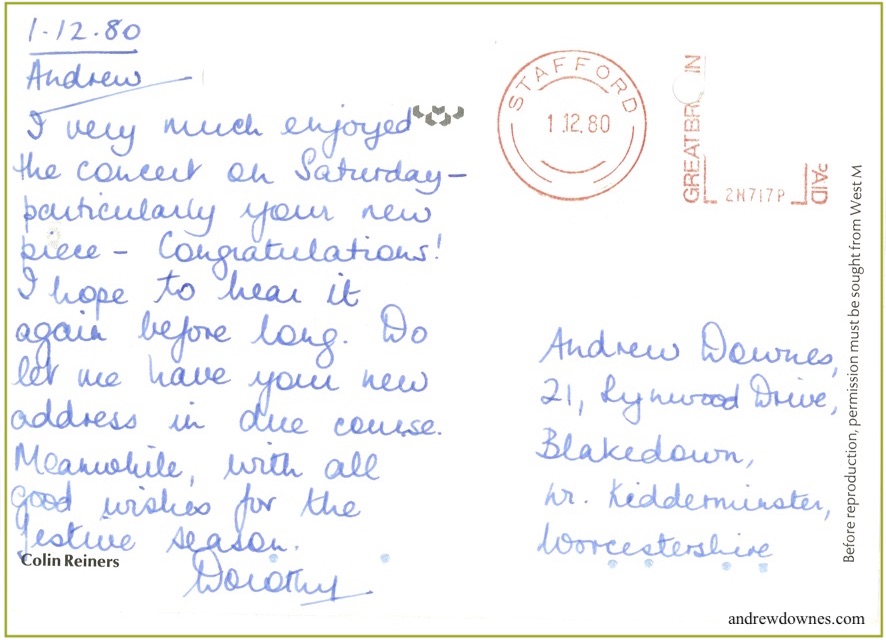 1.12.80
Andrew
I very much enjoyed
the concert on Saturday –
particularly your new
piece – Congratulations!
I hope to hear it
again before long. Do
let me have your new
address in due course.
Meanwhile, with all
good wishes for the
festive season.
Colin Reiners
Dorothy
STAFFORD
1.12.80
GREAT BR IN
2N717P
PAID
Andrew Downes,
21, Lynwood Drive,
Blakedown,
Nr. Kidderminster,
Worcestershire
Before reproduction, permission must be sought from West M
andrewdownes.com